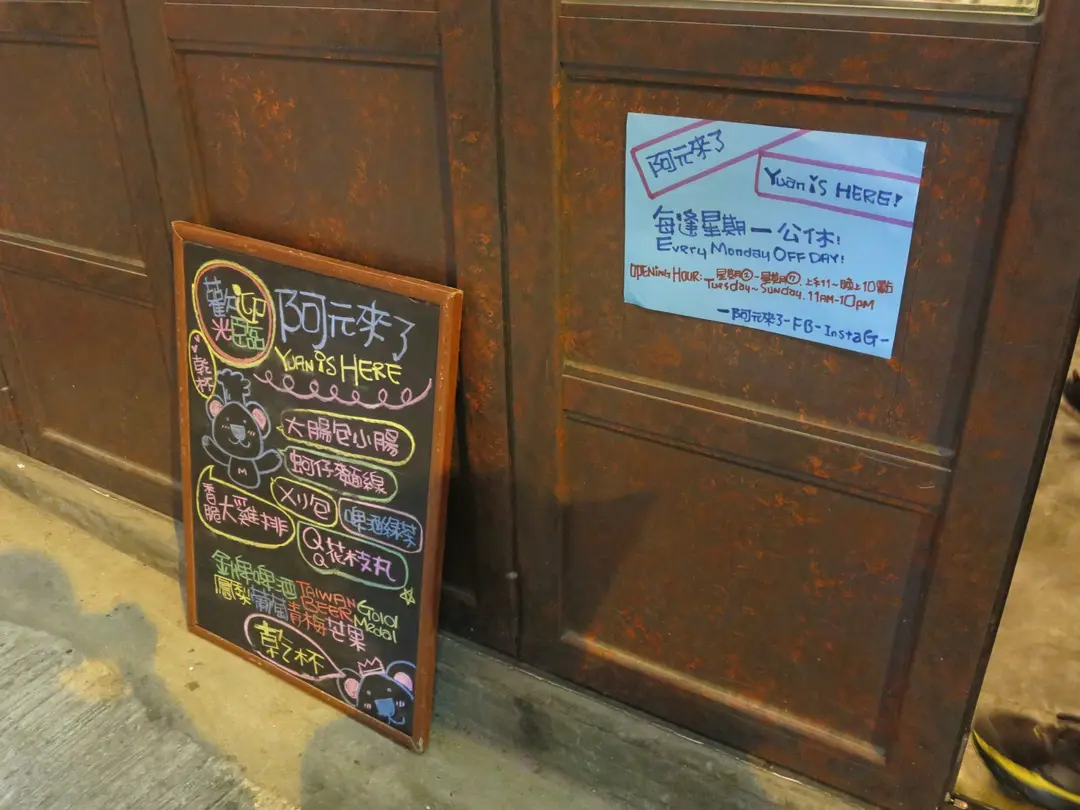 歡迎
光臨
阿元來了
YUAN IS HERE
乾杯
大腸包小腸
蚵仔麵線
刈包
啤酒綠茶
香脆大雞排
QQ花枝丸
金牌啤酒 TAIWAN BEER Gold Medal
鳳梨 葡萄 青梅 芒果
乾杯
M
阿元來了
Yuan IS HERE!
每逢星期一公休!
Every Monday OFF DAY!
OPENING HOUR: 星期②~星期⑦, 上午11~晚上10點
Tuesday~Sunday. 11AM-10PM
-阿元來了-FB-InstaG-